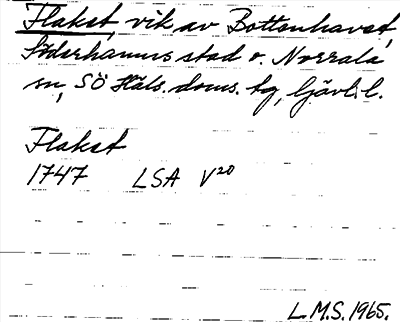 Flakset, vik av Bottenhavet,
Söderhamns stad o. Norrala
sn, SÖ Häls. doms. tg, Gävl. l.
Flakset
1747 LSA V20
L.M.S. 1965.